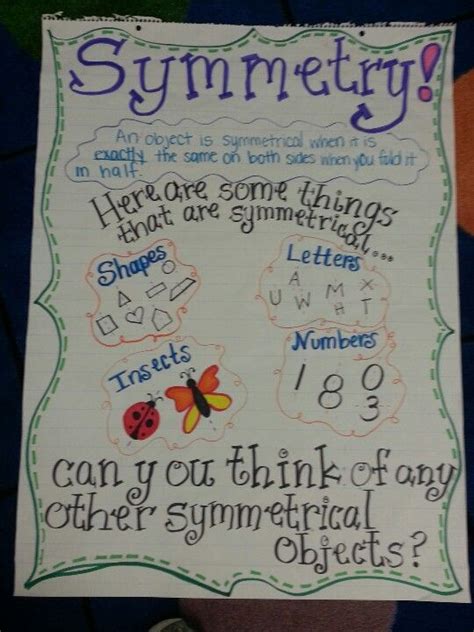 Symmetry!
An object is symmetrical when it is
exactly the same on both sides when you fold it
in half.
Here are some things
that are symmetrical...
Shapes
Letters
A M X
U W H T
Insects
Numbers
1 8 0
3
can you think of any
other symmetrical
objects?